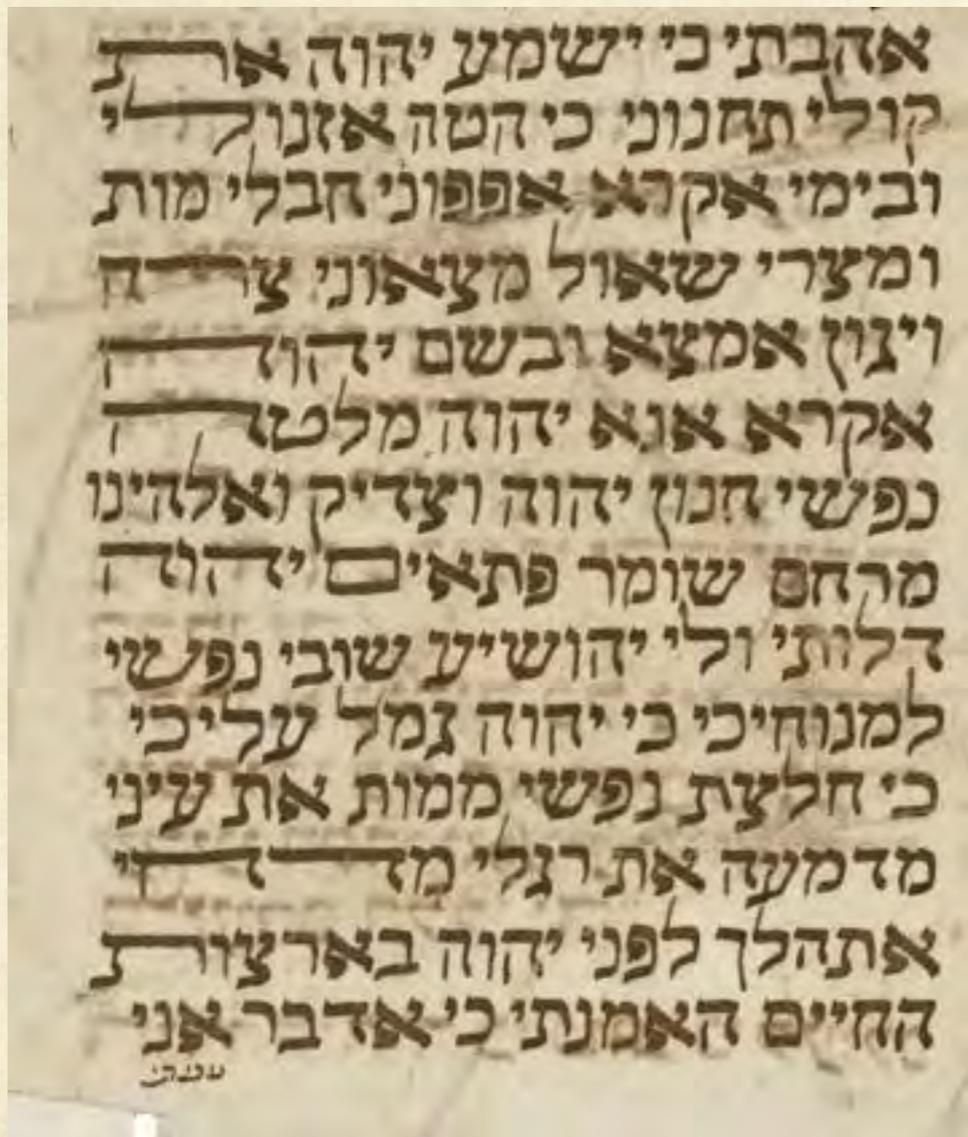 אהבתי כי ישמע יהוה את
קולי תחנוני כי הטה אזנו לי
ובימי אקרא אפפוני חבלי מות
ומצרי שאול מצאוני צרה
ויגון אמצא ובשם יהוה
אקרא אנא יהוה מלטה
נפשי חנון יהוה וצדיק ואלהינו
מרחם שומר פתאים יהוה
דלותי ולי יהושיע שובי נפשי
למנוחיכי כי יהוה גמל עליכי
כי חלצת נפשי ממות את עיני
מדמעה את רגלי מדחי
אתהלך לפני יהוה בארצות
החיים האמנתי כי אדבר אני
עניתי